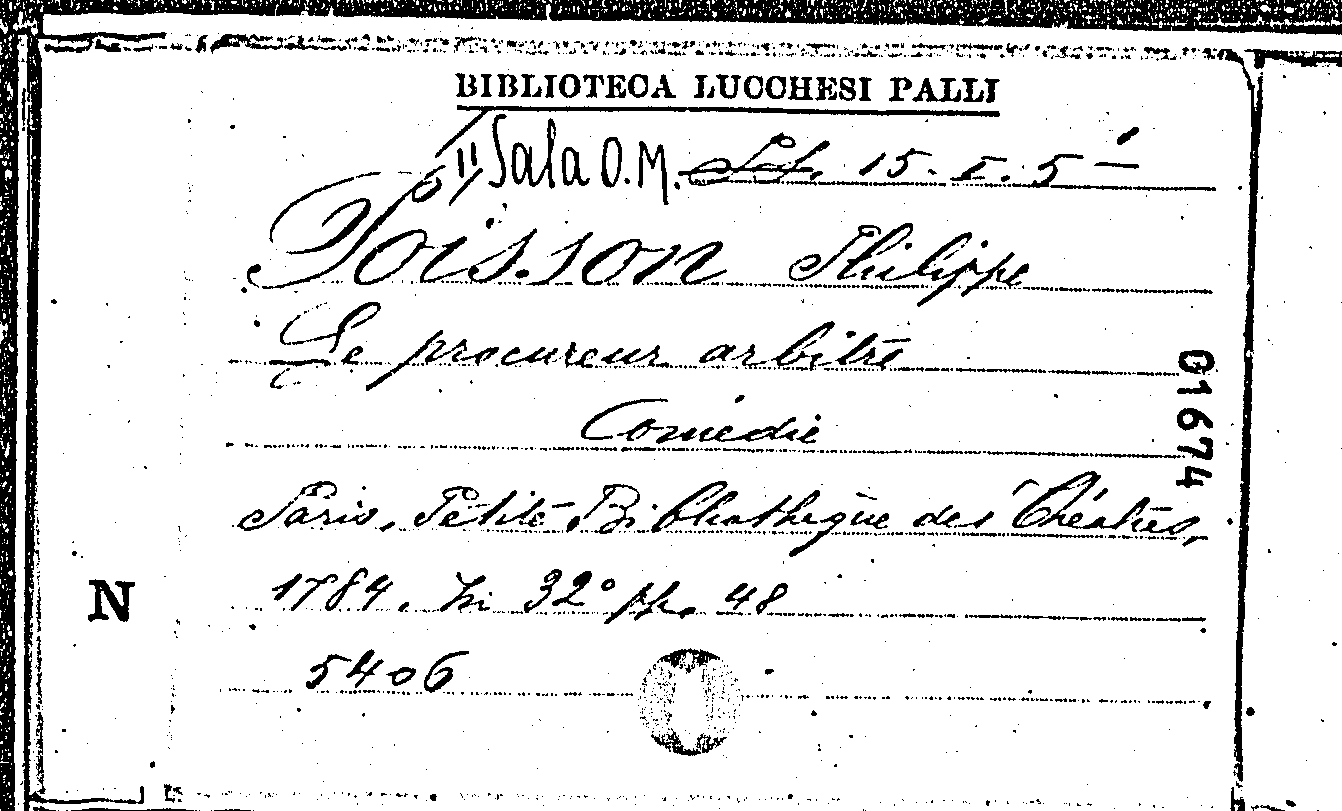 BIBLIOTECA LUCCHESI PALLI
Sala O.M. 15. I. 5
Poisson Philippe
Le procureur arbitre
Comédie
01674
Paris, Petite Bibliothèque des Théatres,
1784. In 32° pp. 48
N
5406